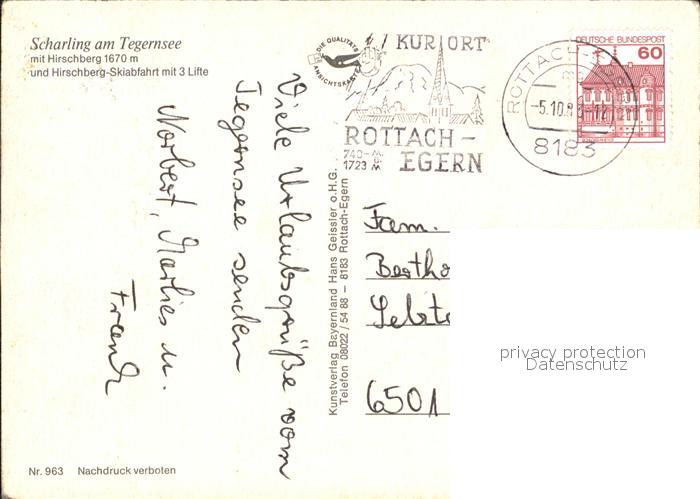 Scharling am Tegernsee
mit Hirschberg 1670 m
und Hirschberg-Skiabfahrt mit 3 Lifte
DIE QUALITÄTS
ANSICHTSKARTE
KURORT
ROTTACH-
EGERN
740-
1723 m
ROTTACH-
-5.10.
8183
DEUTSCHE BUNDESPOST
60
Viele Urlaubsgrüße vom
Tegernsee senden
Norbert, Marlies u.
Frank
Kunstverlag Bayernland Hans Geissler o.H.G.
Telefon 08022 / 54 88 – 8183 Rottach-Egern
Fam.
Bertho
6501
privacy protection
Datenschutz
Nr. 963 Nachdruck verboten